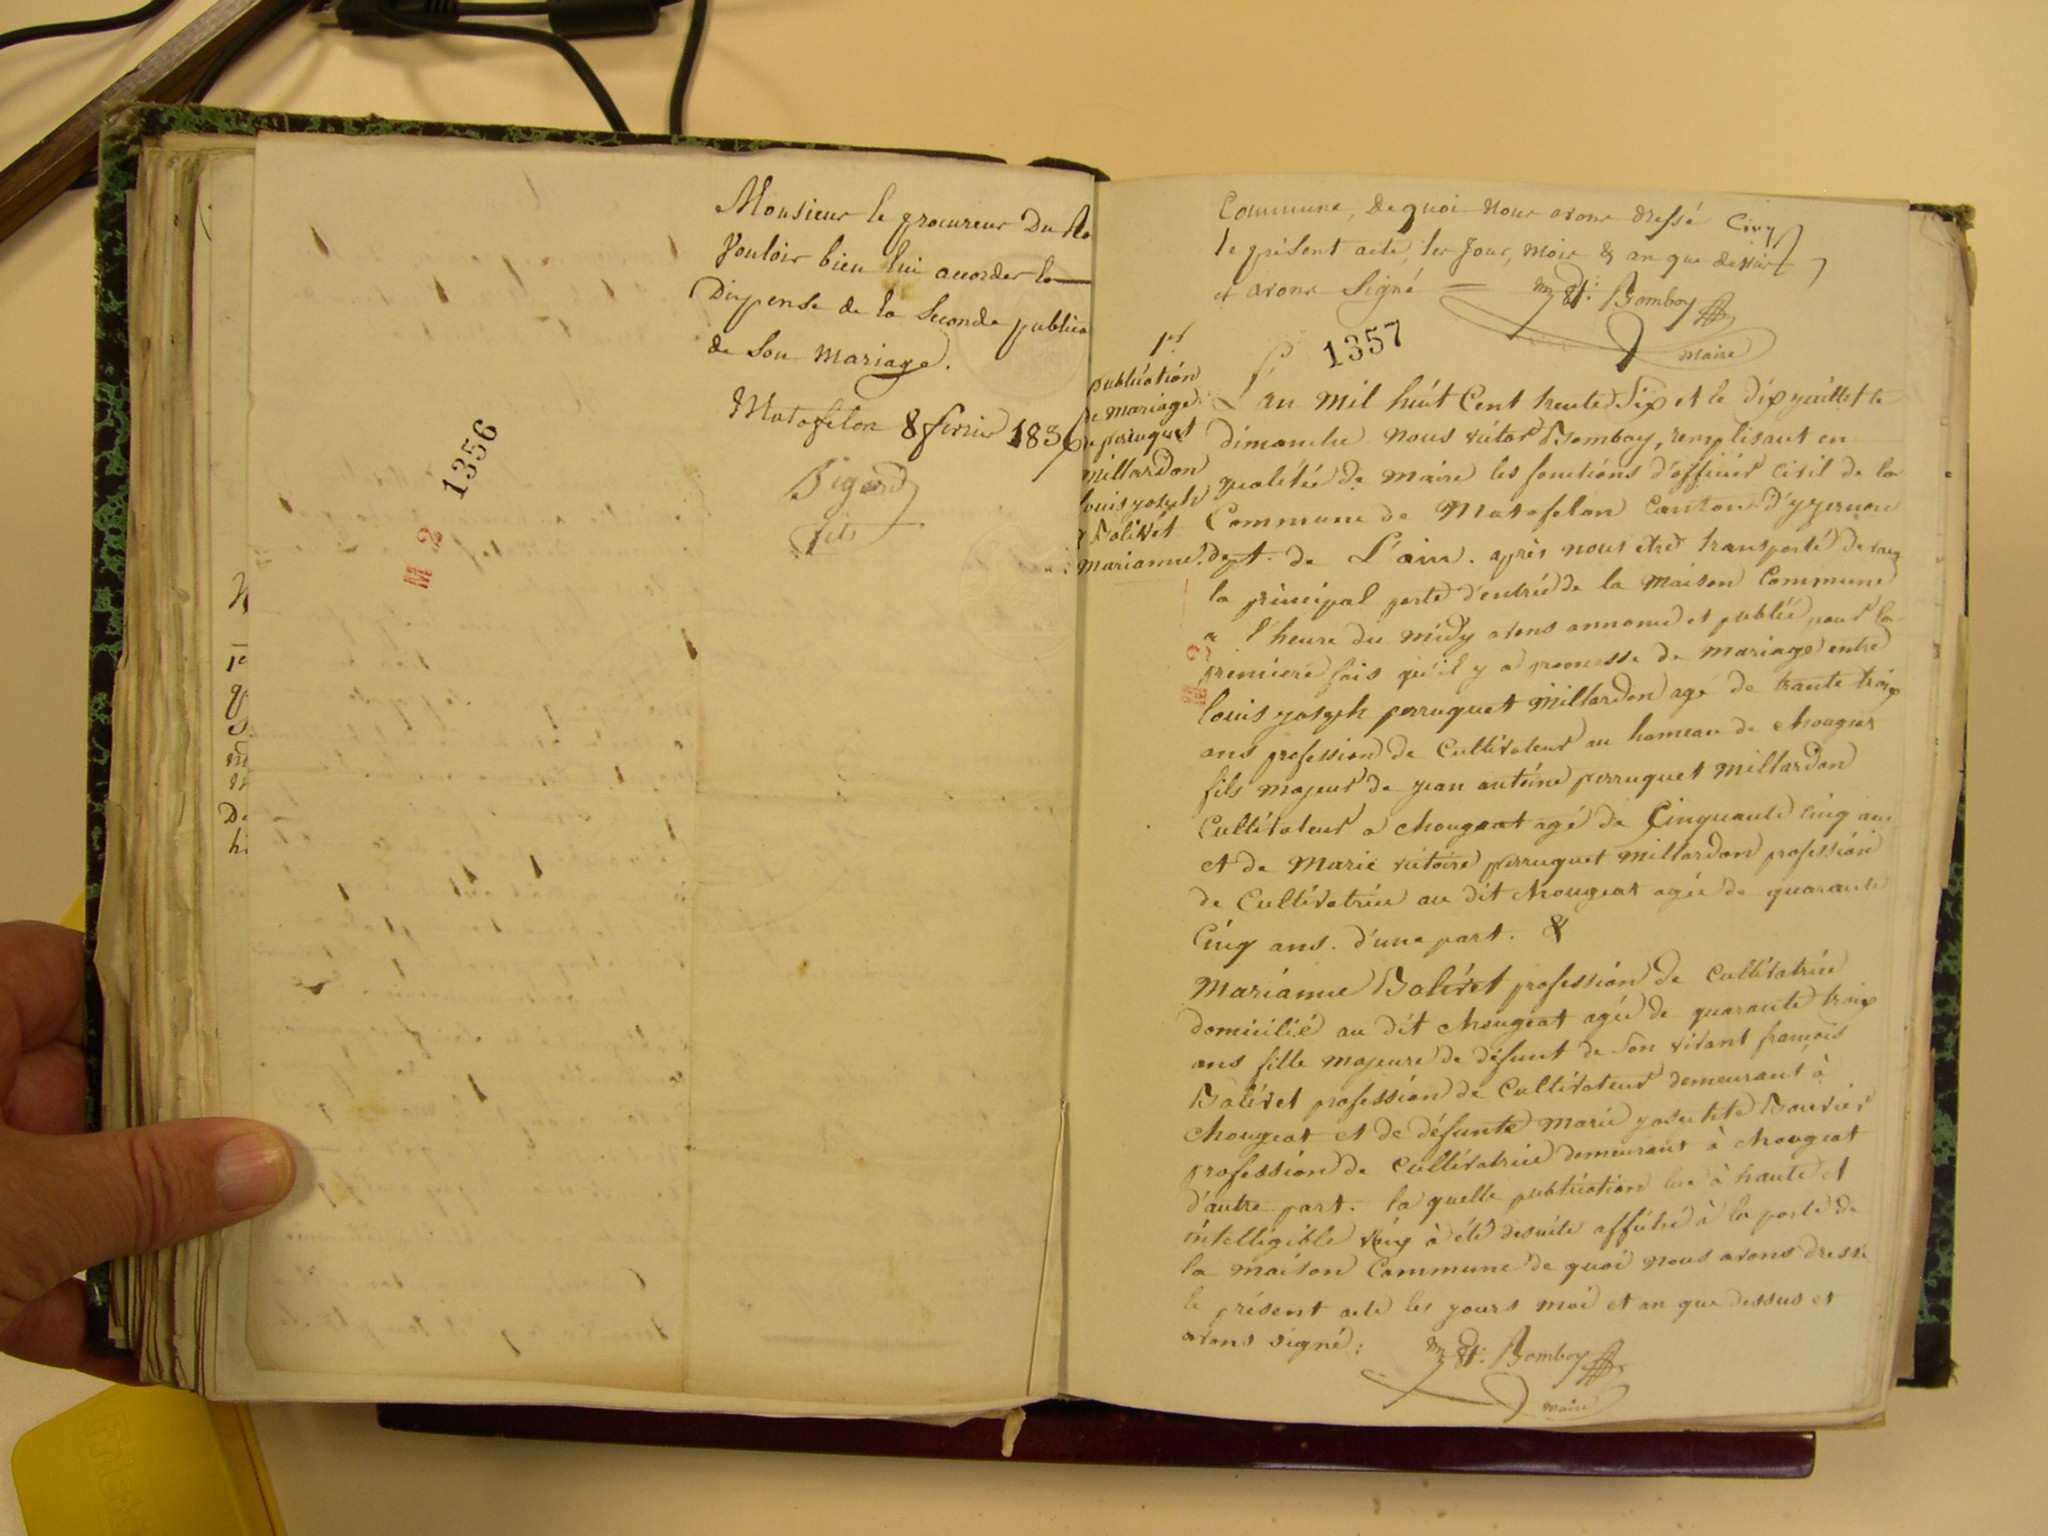 Monsieur le procureur Du Ro
Vouloir bien lui accorder la
Dispense de la Seconde publica
de Son mariage.
Matafelon 8 fevrier 1836
Bigard
fils
1356
M 2
Commune, De quoi nour avonr dressé Cinq
le présent acte, ler Jour, moir & an que dessur
et avonr Signé = Bomboy
maire
1357
1re
publication
de mariage
perruquet
millardon
louis yoseph
& Bolivet
marianne.
L'an mil huit Cent trente Six et le dix juillet le
dimanche nous victor Bomboy, remplisant en
qualitée de maire les fonctions d'officier civil de la
Commune de Matafelon Canton d'yzernon
dept. de L'ain. après nous être transporté devan
la principal porte d'entrée de la maison Commune
a l'heure du midy avons annoncé et publié pour la
premiere fois qu'il y a promesse de mariage entre
louis yoseph perruquet millardon agé de trante troix
ans profession de Cultivateur au hameau de chougeat
fils majeur de yean antoine perruquet millardon
Cultivateur a chougeat agé de Cinquante cinq ans
et de Marie victoire perruquet millardon profession
de Cultivatrice au dit chougeat agée de quarante
Cinq ans. d'une part. &
Marianne Bolivet profession de Cultivatrice
domicilié au dit chougeat agée de quarante troix
ans fille majeure de défunt de son vivant françois
Bolivet profession de Cultivateur demeurant à
chougeat et de défunte marie Bouvier
profession de Cultivatrice demeurant à chougeat
d'autre part. la quelle publication lue à haute et
intelligible voix à été desuite affiché à la porte de
la maison Commune de quoi nous avons dressé
le présent acte les yours moi et an que dessus et
avons signé: Bomboy
maire